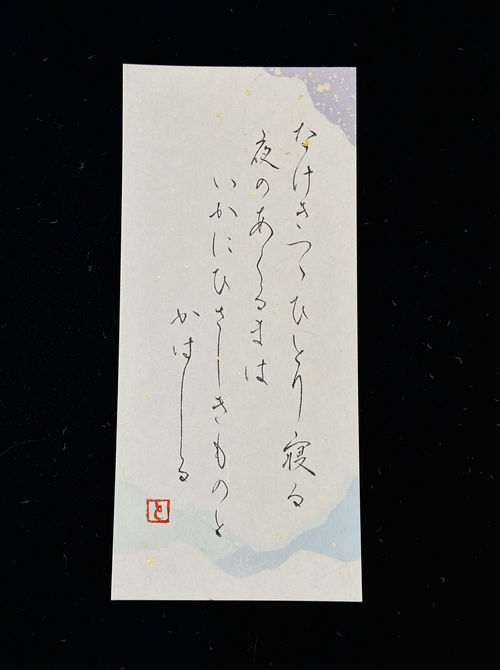 なけきつゝひとり寝る
夜のあくるまは
いかにひさしきものと
かはしる
と